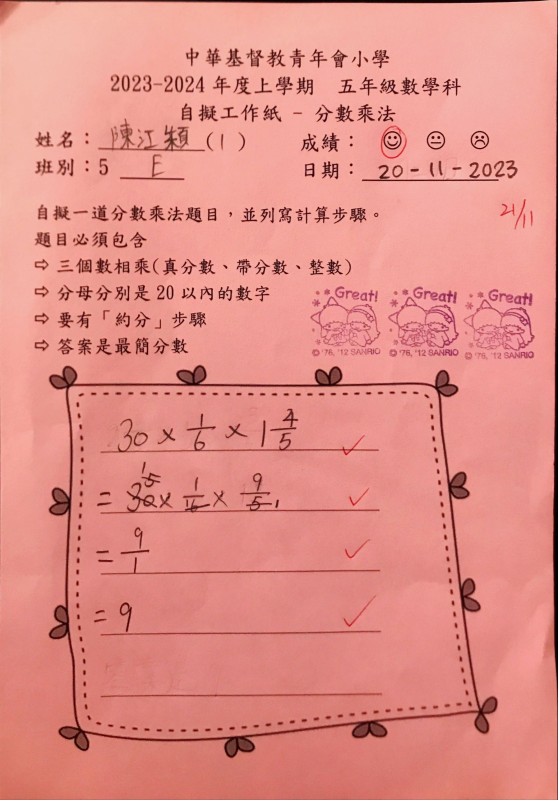 中華基督教青年會小學
2023-2024 年度上學期 五年級數學科
自擬工作紙 - 分數乘法
姓名：陳江穎(1) 成績：
班別：5 E 日期：20-11-2023
21/11
自擬一道分數乘法題目，並列寫計算步驟。
題目必須包含
⇨ 三個數相乘(真分數、帶分數、整數)
⇨ 分母分別是 20 以內的數字
⇨ 要有「約分」步驟
⇨ 答案是最簡分數
Great! Great! Great!
© '76, '12 SANRIO © '76, '12 SANRIO © '76, '12 SANRIO
30 × 1/6 × 1 4/5
= 30 × 1/6 × 9/5
= 9/1
= 9